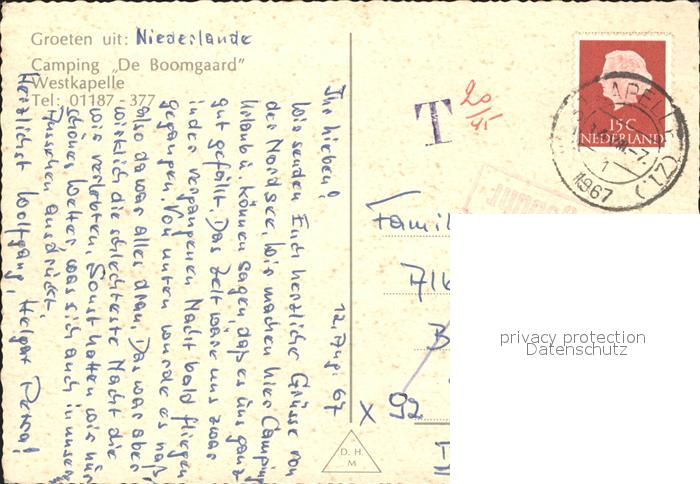 Groeten uit: Niederlande
Camping „De Boomgaard"
Westkapelle
Tel: 01187 - 377
12. Aug. 67
Ihr Lieben!
Wir senden Euch herzliche Grüsse von
der Nordsee. Wir machen hier Camping
Urlaub u. können sagen, daß es uns ganz
gut gefällt. Das Zelt wäre uns zwar
in der vergangenen Nacht bald fliegen
gegangen. Von unten wurde es naß
also da war alles dran. Das war aber
wirklich die schlechteste Nacht die
wir verlebten. Sonst hatten wir nur
schönes Wetter, was sich auch in unserem
Aussehen ausdrückt.
Herzlichst Wolfgang, Helga
T
20
45
15 C
NEDERLAND
1967
Famil
B
X 92
D. H.
M
privacy protection
Datenschutz